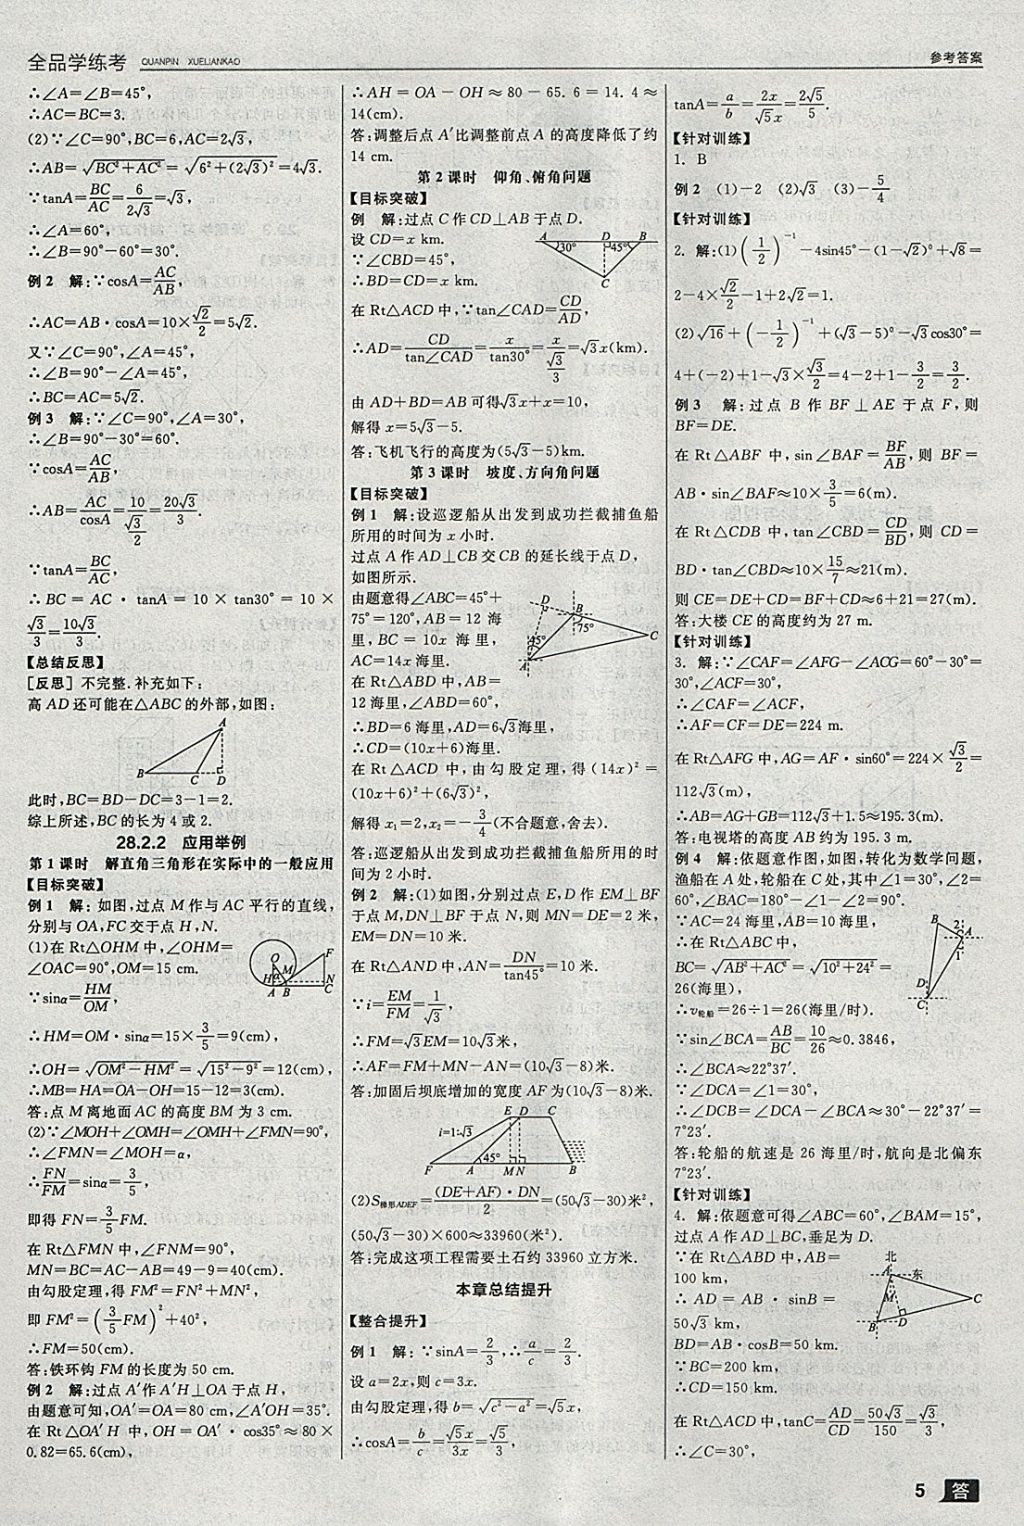 全品学练考 QUANPIN XUELIANKAO
参考答案
∴∠A=∠B=45°,
∴AC=BC=3.
(2)∵∠C=90°,BC=6,AC=2√3,
∴AB=√(BC²+AC²)=√(6²+(2√3)²)=4√3.
∵tanA=BC/AC=6/(2√3)=√3,
∴∠A=60°,
∴∠B=90°-60°=30°.
例2 解:∵cosA=AC/AB,
∴AC=AB·cosA=10×√2/2=5√2.
又∵∠C=90°,∠A=45°,
∴∠B=90°-∠A=45°,
∴BC=AC=5√2.
例3 解:∵∠C=90°,∠A=30°,
∴∠B=90°-30°=60°.
∵cosA=AC/AB,
∴AB=AC/cosA=10/(√3/2)=20√3/3.
∵tanA=BC/AC,
∴BC=AC·tanA=10×tan30°=10×
√3/3=10√3/3.
【总结反思】
[反思] 不完整.补充如下:
高AD还可能在△ABC的外部,如图:
A
B C D
此时,BC=BD-DC=3-1=2.
综上所述,BC的长为4或2.
28.2.2 应用举例
第1课时 解直角三角形在实际中的一般应用
【目标突破】
例1 解:如图,过点M作与AC平行的直线,
分别与OA,FC交于点H,N.
(1)在Rt△OHM中,∠OHM=
∠OAC=90°,OM=15 cm.
∵sinα=HM/OM,
O F H α M N A B C
∴HM=OM·sinα=15×3/5=9(cm),
∴OH=√(OM²-HM²)=√(15²-9²)=12(cm),
∴MB=HA=OA-OH=15-12=3(cm).
答:点M离地面AC的高度BM为3 cm.
(2)∵∠MOH+∠OMH=∠OMH+∠FMN=90°,
∴∠FMN=∠MOH=α,
∴FN/FM=sinα=3/5,
即得FN=3/5FM.
在Rt△FMN中,∠FNM=90°,
MN=BC=AC-AB=49-9=40(cm).
由勾股定理,得FM²=FN²+MN²,
即FM²=(3/5FM)²+40²,
∴FM=50(cm).
答:铁环钩FM的长度为50 cm.
例2 解:过点A′作A′H⊥OA于点H,
由题意可知,OA′=OA=80 cm,∠A′OH=35°.
在Rt△OA′H中,OH=OA′·cos35°≈80×
0.82=65.6(cm),
∴AH=OA-OH≈80-65.6=14.4≈
14(cm).
答:调整后点A′比调整前点A的高度降低了约
14 cm.
第2课时 仰角、俯角问题
【目标突破】
例 解:过点C作CD⊥AB于点D.
设CD=x km.
∵∠CBD=45°,
∴BD=CD=x km.
A D B 30° 45° C
在Rt△ACD中,∵tan∠CAD=CD/AD,
∴AD=CD/tan∠CAD=x/tan30°=x/(√3/3)=√3x(km).
由AD+BD=AB可得√3x+x=10,
解得x=5√3-5.
答:飞机飞行的高度为(5√3-5)km.
第3课时 坡度、方向角问题
【目标突破】
例1 解:设巡逻船从出发到成功拦截捕鱼船
所用的时间为x小时.
过点A作AD⊥CB交CB的延长线于点D,
如图所示.
由题意得∠ABC=45°+
75°=120°,AB=12海
里,BC=10x海里,
AC=14x海里.
在Rt△ABD中,AB=
12海里,∠ABD=60°,
D B 75° 45° C A
∴BD=6海里,AD=6√3海里,
∴CD=(10x+6)海里.
在Rt△ACD中,由勾股定理,得(14x)²=
(10x+6)²+(6√3)²,
解得x₁=2,x₂=-3/4(不合题意,舍去).
答:巡逻船从出发到成功拦截捕鱼船所用的时
间为2小时.
例2 解:(1)如图,分别过点E,D作EM⊥BF
于点M,DN⊥BF于点N,则MN=DE=2米,
EM=DN=10米.
在Rt△AND中,AN=DN/tan45°=10米.
∵i=EM/FM=1/√3,
∴FM=√3EM=10√3米,
∴AF=FM+MN-AN=(10√3-8)米.
答:加固后坝底增加的宽度AF为(10√3-8)米.
E D C i=1:√3 45° F A M N B
(2)S梯形ADEF=(DE+AF)·DN/2=(50√3-30)米²,
(50√3-30)×600≈33960(米³).
答:完成这项工程需要土石约33960立方米.
本章总结提升
【整合提升】
例1 解:∵sinA=2/3,∴a/c=2/3.
设a=2x,则c=3x.
由勾股定理,得b=√(c²-a²)=√5x,
∴cosA=b/c=√5x/3x=√5/3,
tanA=a/b=2x/√5x=2√5/5.
【针对训练】
1. B
例2 (1)-2 (2)√3 (3)-5/4
【针对训练】
2. 解:(1)(1/2)⁻¹-4sin45°-(1-√2)⁰+√8=
2-4×√2/2-1+2√2=1.
(2)√16+(-1/2)⁻¹+(√3-5)⁰-√3cos30°=
4+(-2)+1-√3×√3/2=4-2+1-3/2=3/2.
例3 解:过点B作BF⊥AE于点F,则
BF=DE.
在Rt△ABF中,sin∠BAF=BF/AB,则BF=
AB·sin∠BAF≈10×3/5=6(m).
在Rt△CDB中,tan∠CBD=CD/BD,则CD=
BD·tan∠CBD≈10×15/7≈21(m).
则CE=DE+CD=BF+CD≈6+21=27(m).
答:大楼CE的高度约为27 m.
【针对训练】
3. 解:∵∠CAF=∠AFG-∠ACG=60°-30°=
30°,∠ACF=30°,
∴∠CAF=∠ACF,
∴AF=CF=DE=224 m.
在Rt△AFG中,AG=AF·sin60°=224×√3/2=
112√3(m).
∴AB=AG+GB=112√3+1.5≈195.3(m).
答:电视塔的高度AB约为195.3 m.
例4 解:依题意作图,如图,转化为数学问题,
渔船在A处,轮船在C处,其中∠1=30°,∠2=
60°,∠BAC=180°-∠1-∠2=90°.
∵AC=24海里,AB=10海里,
∴在Rt△ABC中,
BC=√(AB²+AC²)=√(10²+24²)=
26(海里),
∴v轮船=26÷1=26(海里/时).
B 2 A 1 D C
∵sin∠BCA=AB/BC=10/26≈0.3846,
∴∠BCA≈22°37′.
∵∠DCA=∠1=30°,
∴∠DCB=∠DCA-∠BCA≈30°-22°37′=
7°23′.
答:轮船的航速是26海里/时,航向是北偏东
7°23′.
【针对训练】
4. 解:依题意可得∠ABC=60°,∠BAM=15°,
过点A作AD⊥BC,垂足为D.
∵在Rt△ABD中,AB=
100 km,
∴AD=AB·sinB=
50√3 km,
BD=AB·cosB=50 km.
北 A 东 M C B D
∵BC=200 km,
∴CD=150 km.
在Rt△ACD中,tanC=AD/CD=50√3/150=√3/3,
∴∠C=30°,
5 答